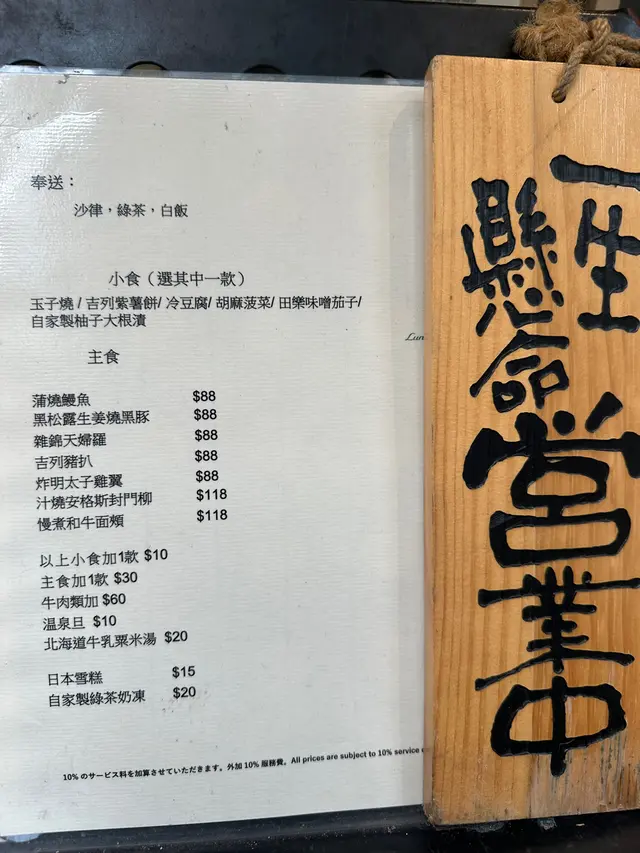 奉送：
沙律，綠茶，白飯
小食（選其中一款）
玉子燒 / 吉列紫薯餅/ 冷豆腐/ 胡麻菠菜/ 田樂味噌茄子/
自家製柚子大根漬
主食
蒲燒鰻魚 $88
黑松露生姜燒黑豚 $88
雜錦天婦羅 $88
吉列豬扒 $88
炸明太子雞翼 $88
汁燒安格斯封門柳 $118
慢煮和牛面頰 $118
以上小食加1款 $10
主食加1款 $30
牛肉類加 $60
温泉旦 $10
北海道牛乳粟米湯 $20
日本雪糕 $15
自家製綠茶奶凍 $20
10% のサービス料を加算させていただきます。外加 10% 服務費。All prices are subject to 10% service
Lun
一生
懸命
営業中